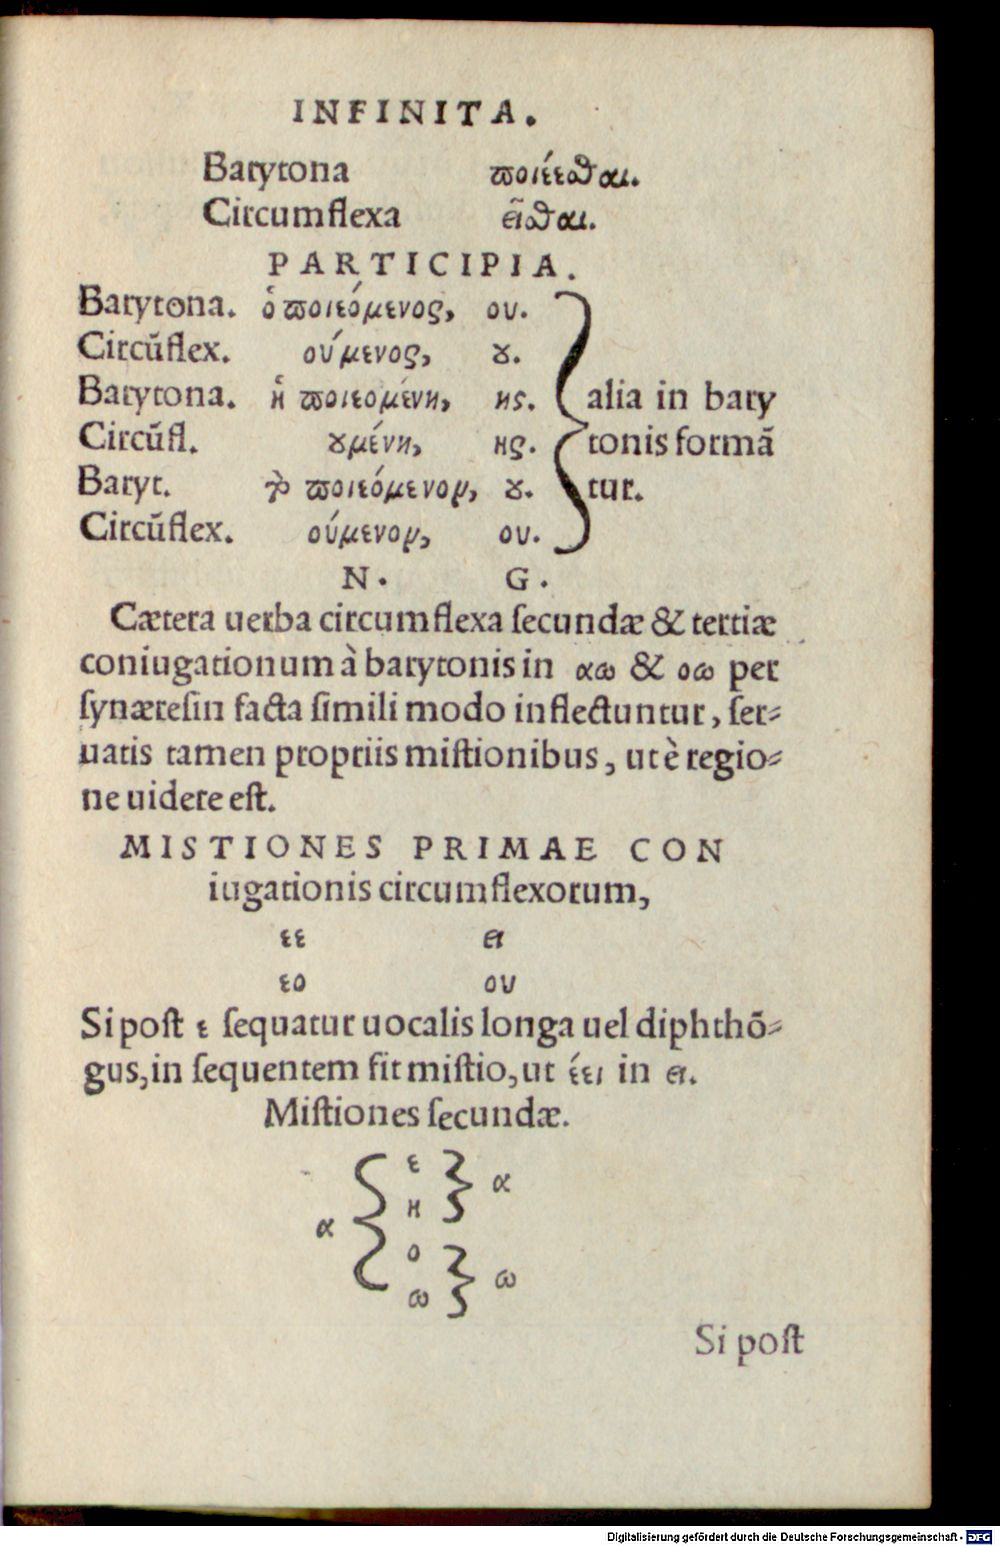 INFINITA.
Barytona ποιέεσθαι.
Circumflexa εῖσθαι.
PARTICIPIA.
Barytona. ὁ ποιεόμενος, ου.
Circūflex. ούμενος, ȣ.
Barytona. ἡ ποιεομένη, ης.
Circūfl. ȣμένη, ης.
Baryt. τὸ ποιεόμενον, ȣ.
Circūflex. ούμενον, ου.
alia in bary
tonis formā
tur.
N. G.
Cætera uerba circumflexa ſecundæ & tertiæ
coniugationum à barytonis in αω & οω per
ſynæreſin facta ſimili modo inflectuntur, ſer⸗
uatis tamen propriis miſtionibus, ut è regio⸗
ne uidere eſt.
MISTIONES PRIMAE CON
iugationis circumflexorum,
εε ει
εο ου
Si poſt ε ſequatur uocalis longa uel diphthō⸗
gus, in ſequentem fit miſtio, ut έει in ει.
Miſtiones ſecundæ.
ε
α
η
α
ο
ω
ω
Si poſt
Digitalisierung gefördert durch die Deutsche Forschungsgemeinschaft - DFG